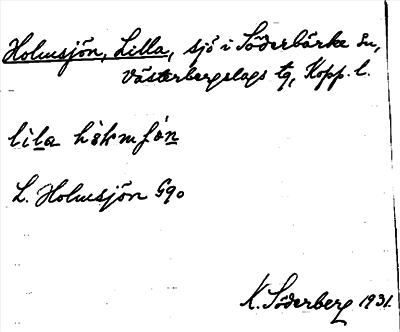 Holmsjön, Lilla, sjö i Söderbärke sn,
Västerbergslags tg, Kopp. l.
lila hòkmfón
L. Holmsjön G90
K. Söderberg 1931.